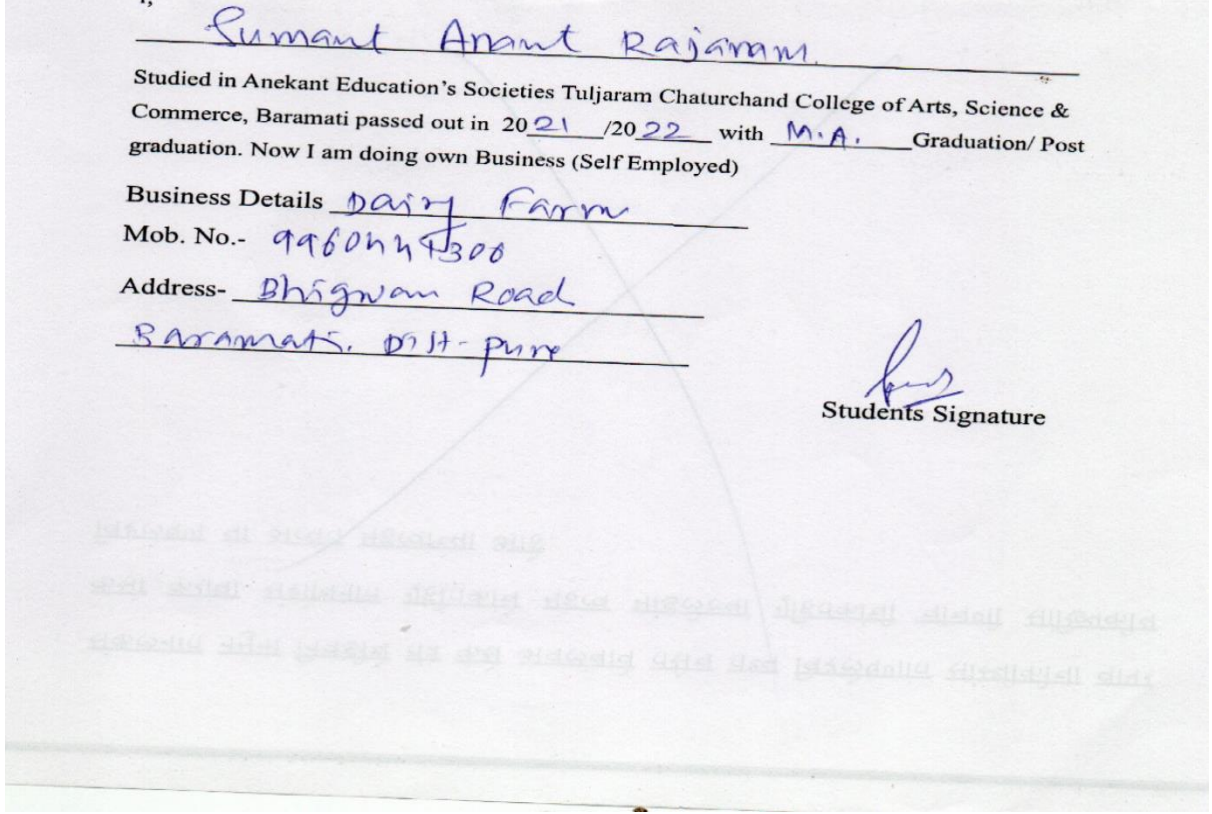 Sumant Anant Rajaram
Studied in Anekant Education's Societies Tuljaram Chaturchand College of Arts, Science &
Commerce, Baramati passed out in 2021/2022 with M.A. Graduation/ Post
graduation. Now I am doing own Business (Self Employed)
Business Details Dairy Farm
Mob. No.-
Address- Bhigwan Road
Baramati. Dist-pune
Students Signature